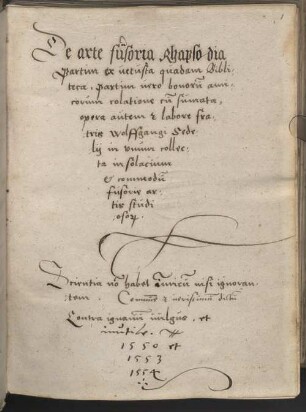 1
De arte fusoria Rhapsodia
Partim ex uetusta quadam Bibli,,
teca, Partim uero bonorũ ami
corum colatione cũ sũmata,
opera autem & labore fra
tris Wolffgangi Sede
lij in vnum collec,,
ta in solacium
& commodũ
fusorie ar,,
tis studi
osoꝝ.
Scientia nõ habet Inimicũ nisi ignoran,,
tem. Commune & uerissimum dictũ
Contra ignauum uulgus, et
inutile.
1550 et
1553
1554